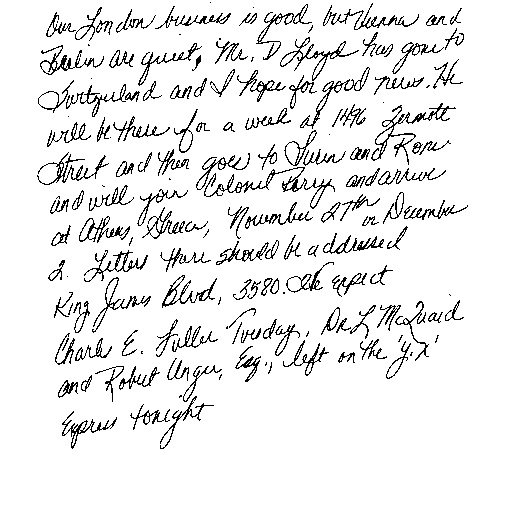 Our London business is good, but Vienna and
Berlin are quiet. Mr. D Lloyd has gone to
Switzerland and I hope for good news. He
will be there for a week at 1496 Zermott
Street and then goes to Turin and Rome
and will join Colonel Parry and arrive
at Athens, Greece, November 27th or December
2. Letters there should be addressed
King James Blvd, 3580. We expect
Charles E. Fuller Tuesday. Dr. L McQuaid
and Robert Unger, Esq., left on the 'Y.X'
Express tonight